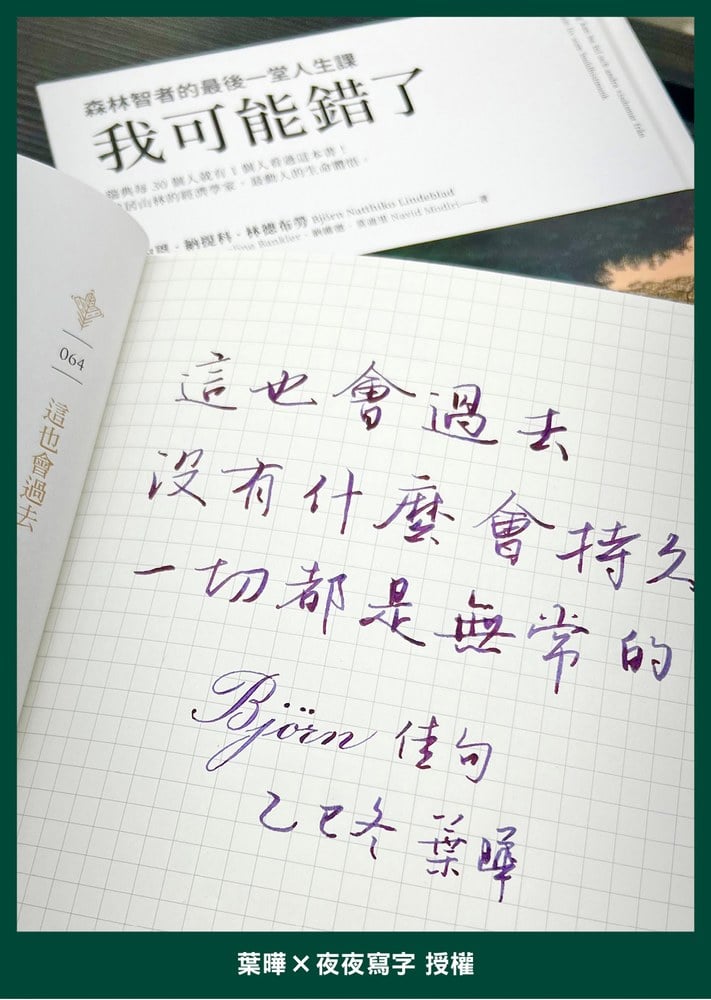 森林智者的最後一堂人生課
我可能錯了
瑞典每30個人就有1個人看過這本書！
居山林的經濟學家，最動人的生命體悟。
納提科・林德布勞 Björn Natthiko Lindeblad
Navid Modiri——著
064
這也會過去
這也會過去
沒有什麼會持久
一切都是無常的
Björn 佳句
乙巳冬 葉曄
葉曄×夜夜寫字 授權